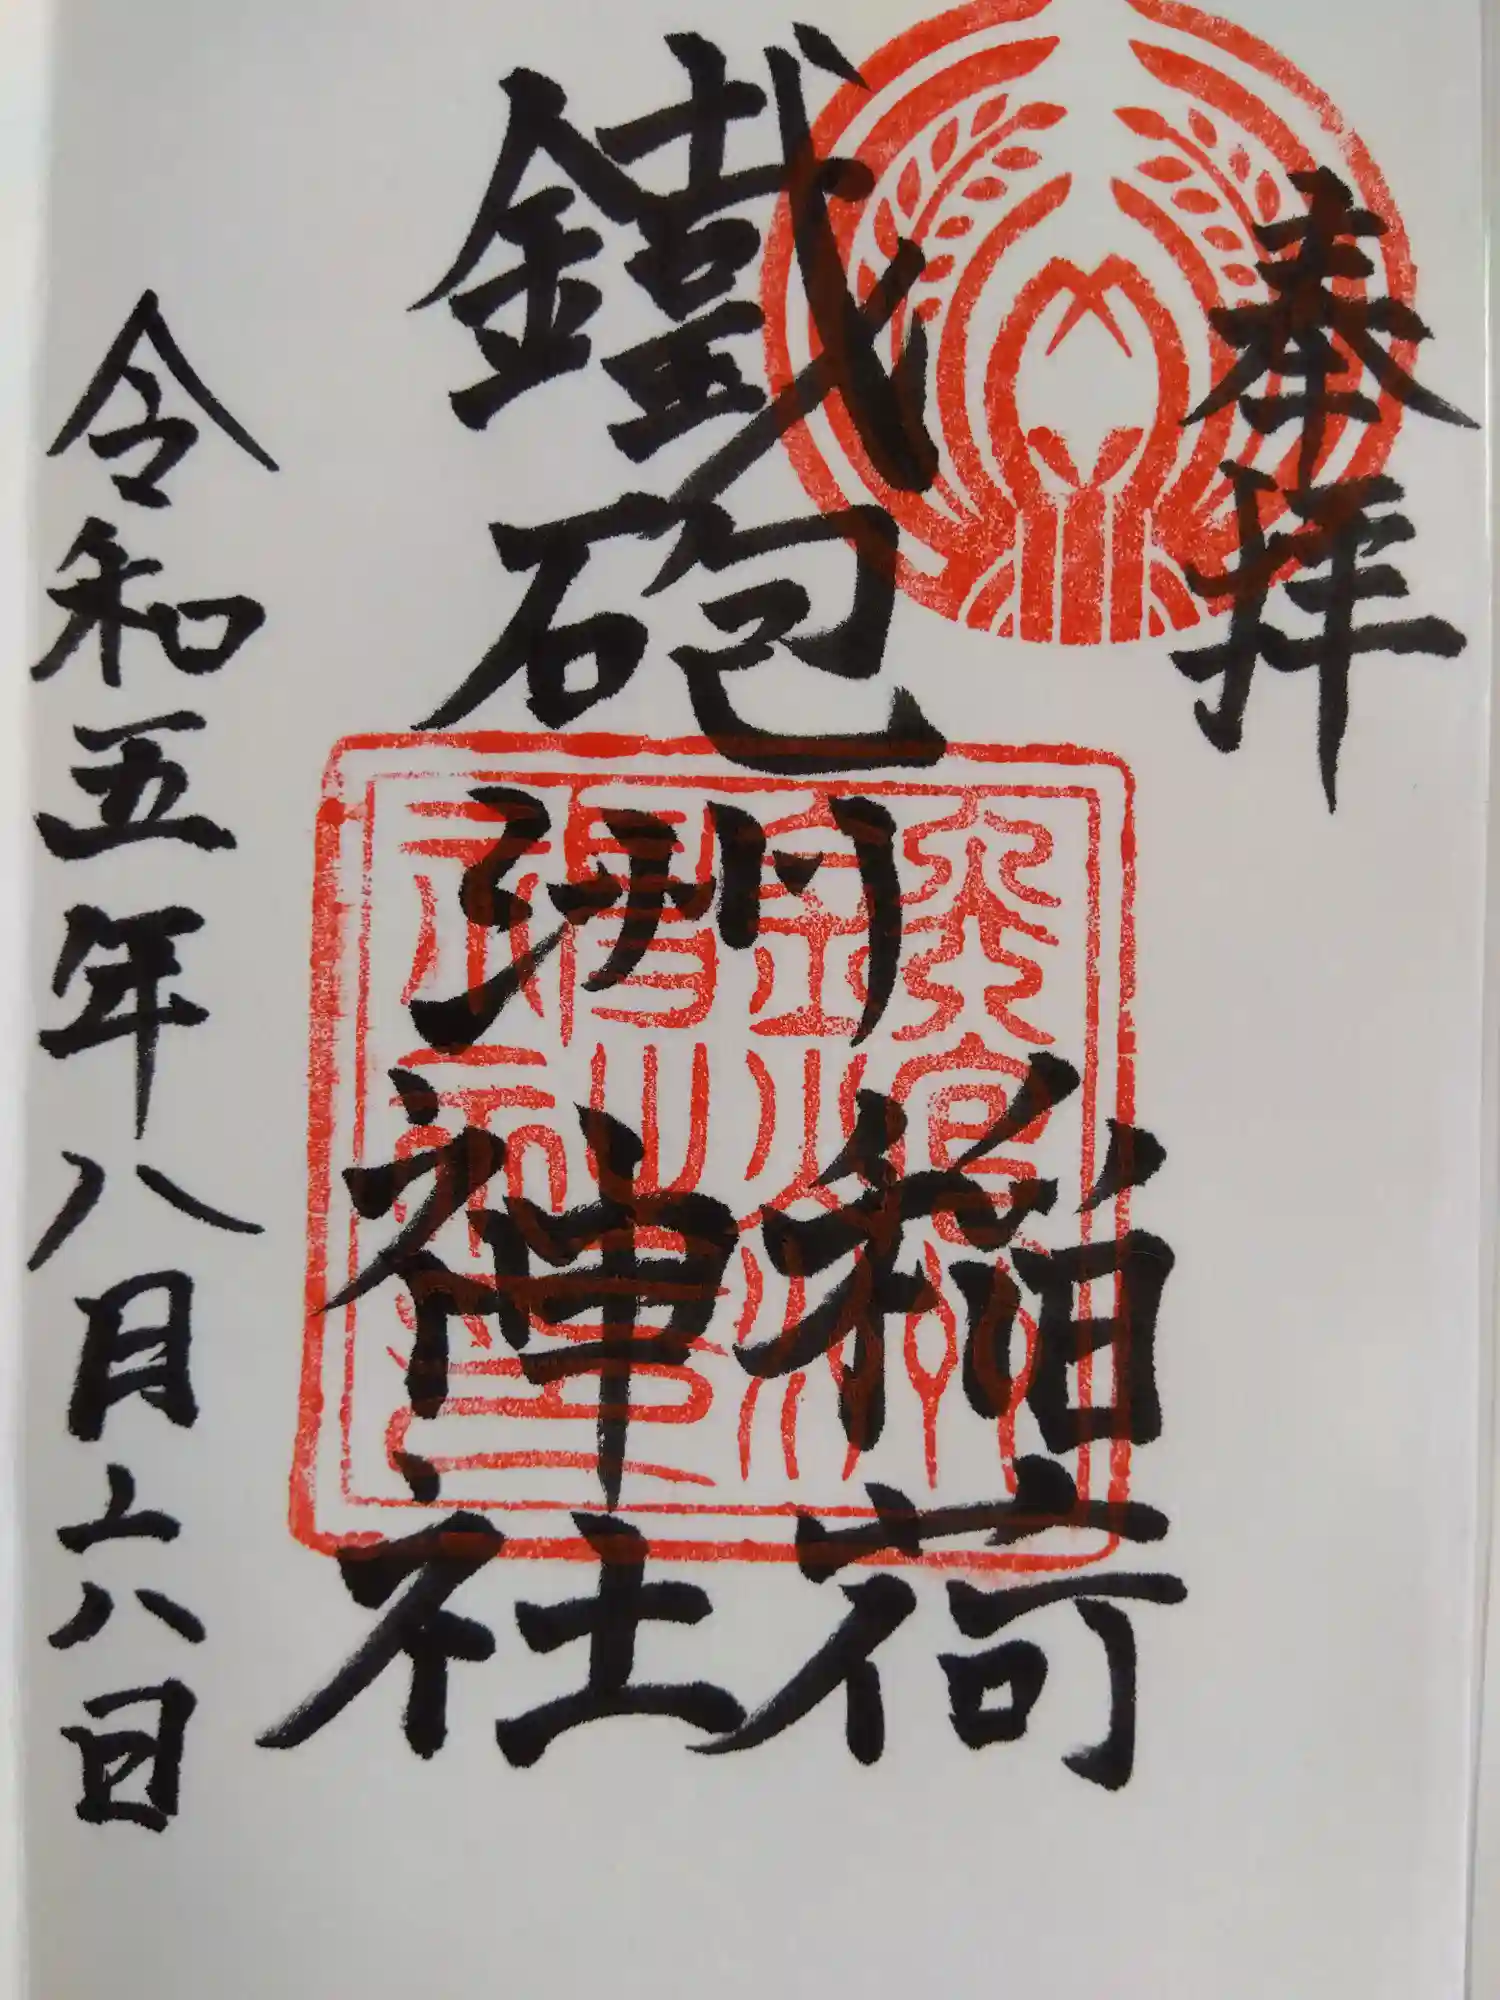 奉拝
鐵砲洲
稲荷
神社
令和五年八月十八日